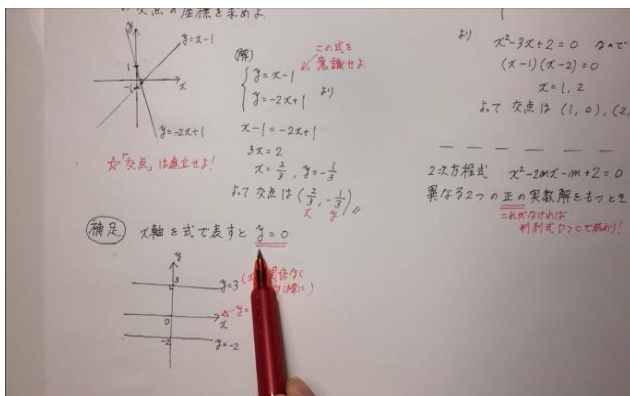 交点の座標を求めよ
y
y=x-1
1
-1
x
y=-2x+1
☆「交点」は連立せよ!
(解)
この式を
意識せよ
y=x-1
y=-2x+1
より
x-1=-2x+1
3x=2
x=2/3, y=-1/3
よって 交点は (2/3, -1/3)
x y
補足
x軸を式で表すと y=0
y
3
y=3
0
x
y=
-2
y=-2
関係なく
より
x²-3x+2=0 なので
(x-1)(x-2)=0
x=1, 2
よって 交点は (1, 0), (2,
2次方程式 x²-2mx-m+2=0
異なる2つの正の実数解をもつとき
これがなければ
判別式D>0で終わり!